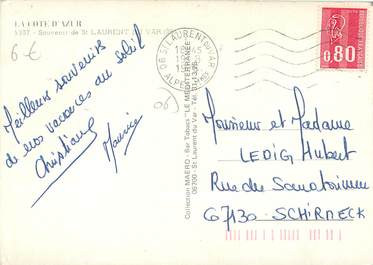 LA COTE D'AZUR
5337 - Souvenir de St LAURENT DU VAR
6€
Meilleurs souvenirs
de nos vacances au soleil
Christiane
Maurice
06)
06 St LAURENT du VAR
ALPES MMES
0,80
Collection MAERO - Bar Tabacs "LE MEDITERRANEE"
06700 - St Laurent du Var - Tél.
Monsieur et Madame
LEDIG Hubert
Rue du Sanatorium
67130 SCHIRMECK